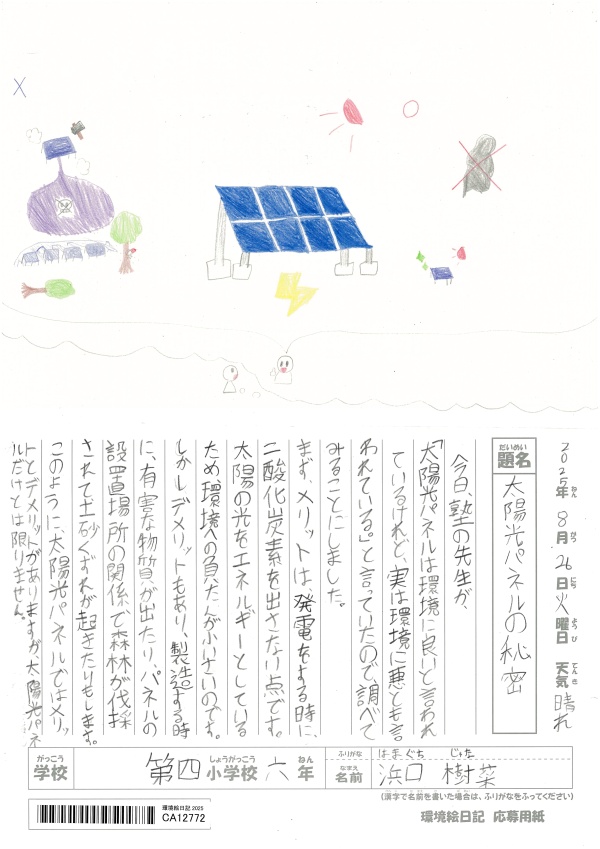 2025年 8月 26日 火曜日 天気 晴れ
ねん がつ にち ようび てんき
だいめい
題名
太陽光パネルの秘密
今日、塾の先生が、
「太陽光パネルは環境に良いと言われ
ているけれど、実は環境に悪とも言
われている。」と言っていたので、調べて
みることにしました。
まず、メリットは、発電をする時に、
二酸化炭素を出さない点です。
太陽の光をエネルギーとしている
ため、環境への負たんが小さいのです。
しかしデメリットもあり、製造する時
に、有害な物質が出たり、パネルの
設置場所の関係で森林が伐採
されて土砂くずれが起きたりもします。
このように、太陽光パネルではメリッ
トとデメリットがありますが、太陽光パネ
ルだけとは限りません。
がっこう
学校
第四小学校 六年
しょうがっこう ねん
ふりがな
はまぐち じゅな
なまえ
名前
浜口 樹菜
(漢字で名前を書いた場合は、ふりがなをふってください)
環境絵日記 2025
CA12772
環境絵日記 応募用紙